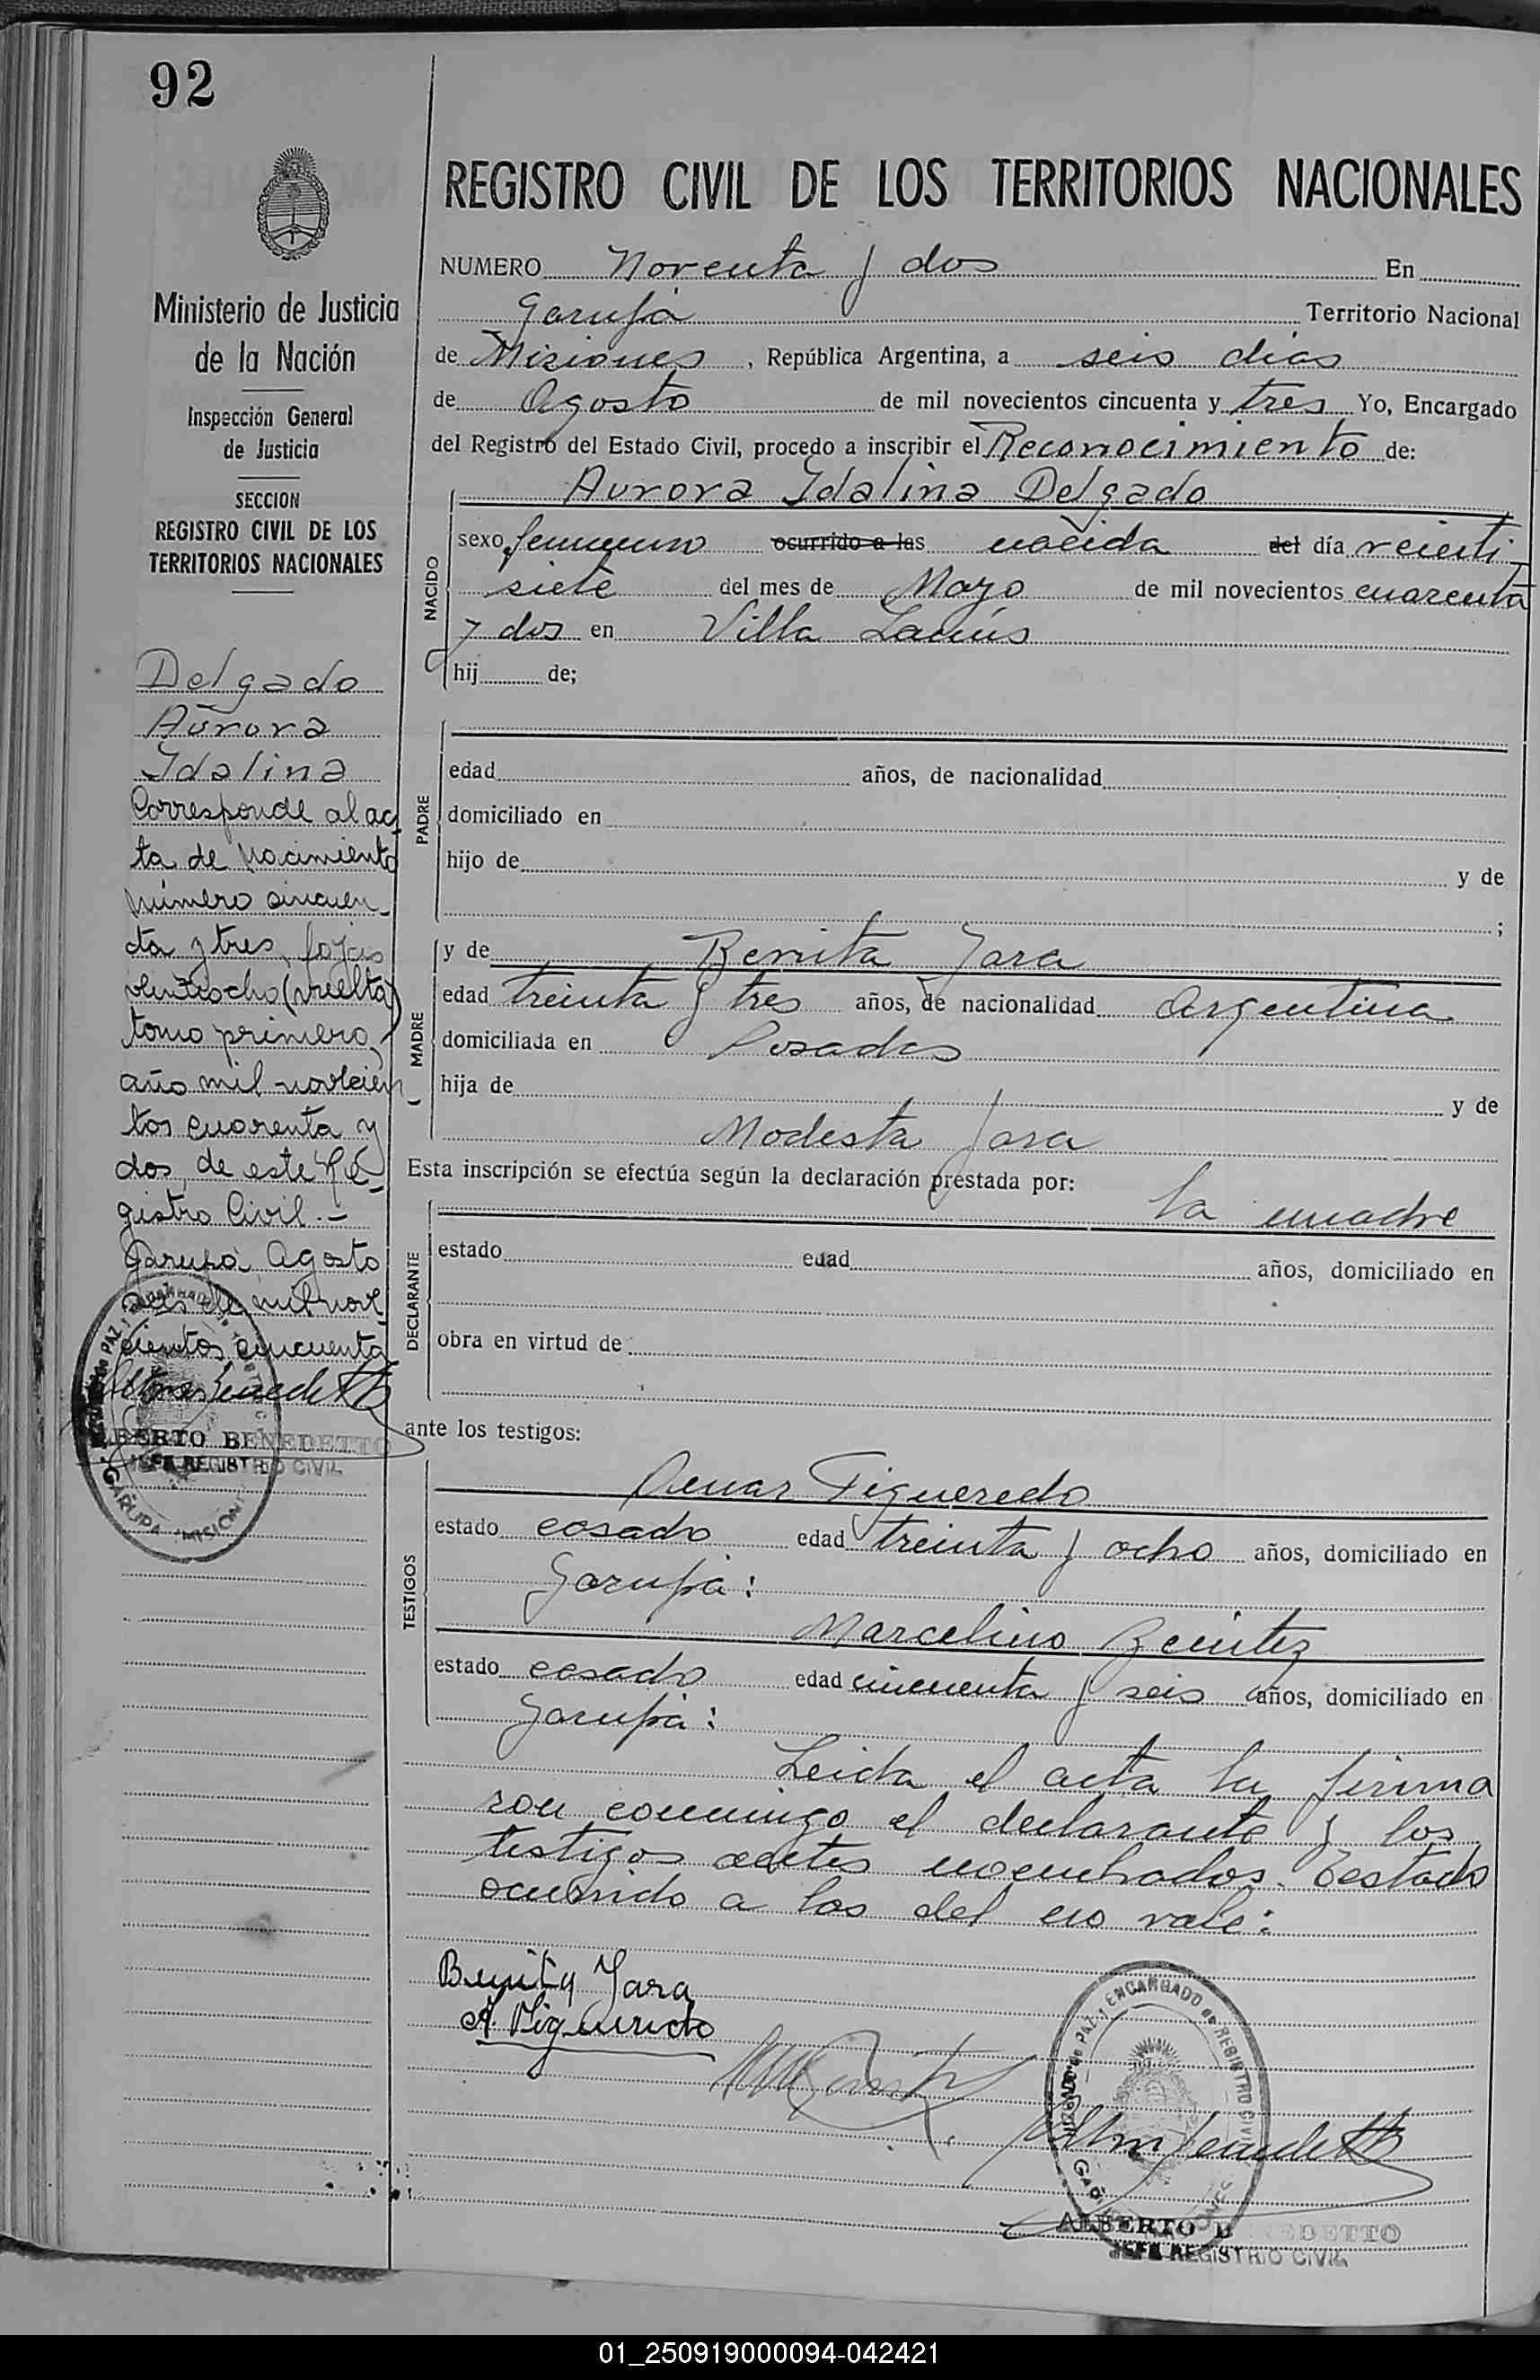 92
REGISTRO CIVIL DE LOS TERRITORIOS NACIONALES
Ministerio de Justicia
de la Nación
Inspección General
de Justicia
SECCION
REGISTRO CIVIL DE LOS
TERRITORIOS NACIONALES
Delgado
Aurora
Idalina
Corresponde al ac
ta de nacimiento
número cincuen-
ta y tres, fojas
veintiocho (vuelta)
tomo primero,
año mil novecien
tos cuarenta y
dos, de este Re-
gistro Civil.-
Garupá Agosto
seis de mil nove
cientos cincuenta
ALBERTO BENEDETTO
JEFE REGISTRO CIVIL
GARUPA MISION
NUMERO Noventa y dos En
Garupá Territorio Nacional
de Misiones, República Argentina, a seis dias
de Agosto de mil novecientos cincuenta y tres Yo, Encargado
del Registro del Estado Civil, procedo a inscribir el Reconocimiento de:
Aurora Idalina Delgado
NACIDO
sexo femenino ocurrido a las nacida del día veinti
siete del mes de Mayo de mil novecientos cuarenta
y dos en Villa Lanús
hij de;
PADRE
edad años, de nacionalidad
domiciliado en
hijo de y de
;
MADRE
y de Benita Jara
edad treinta y tres años, de nacionalidad Argentina
domiciliada en Posadas
hija de y de
Modesta Jara
Esta inscripción se efectúa según la declaración prestada por:
la madre
DECLARANTE
estado edad años, domiciliado en
obra en virtud de
ante los testigos:
TESTIGOS
Figueredo
estado casado edad treinta y ocho años, domiciliado en
Garupá:
Marcelino Benitez
estado casado edad cincuenta y seis años, domiciliado en
Garupá:
Leida el acta la firma
ron conmigo el declarante y los
testigos antes nombrados. Testado
ocurrido a las del no vale:
Benita Jara
A. Figueredo
JUZGADO de PAZ y ENCARGADO de REGISTRO CIVIL
ALBERTO B EDETTO
JEFE REGISTRO CIVIL
01_250919000094-042421